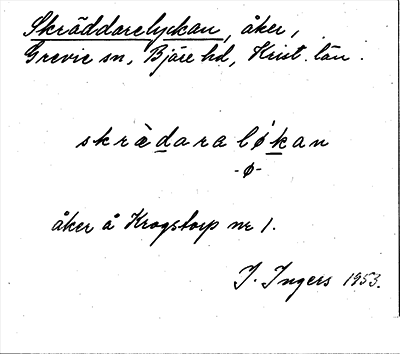 Skräddarelyckan, åker,
Grevie sn, Bjäre hd, Krist. län.
skrädaraløkan
-ø-
åker å Krogstorp nr 1.
I. Ingers 1953.